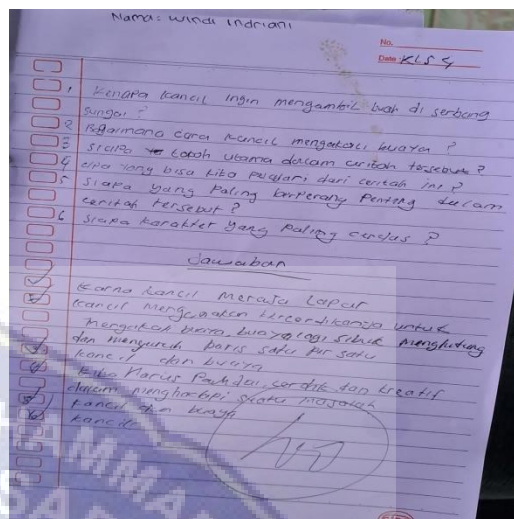 Nama: Windi Indriani
No.
Date KLS 4
1 Kenapa kancil ingin mengambil buah di serbang
sungai ?
2 Bagaimana cara kancil mengatati buaya ?
3 siapa tokoh utama dalam ceritah tersebut ?
4 apa yang bisa kita pelajari dari ceritah ini ?
5 siapa yang paling berperang penting dalam
ceritah tersebut ?
6 siapa karakter yang paling cerdas ?
Jawaban
Karna kancil merasa lapar
kancil mengunakan kecerdikanya untuk
mengakali buaya, buaya lagi sibuk menghitung
dan menyuruh baris satu per satu
kancil dan buaya
kita harus pandai, cerdik dan kreatif
dalam menghadapi suatu masalah
kancil dan buaya
kancil